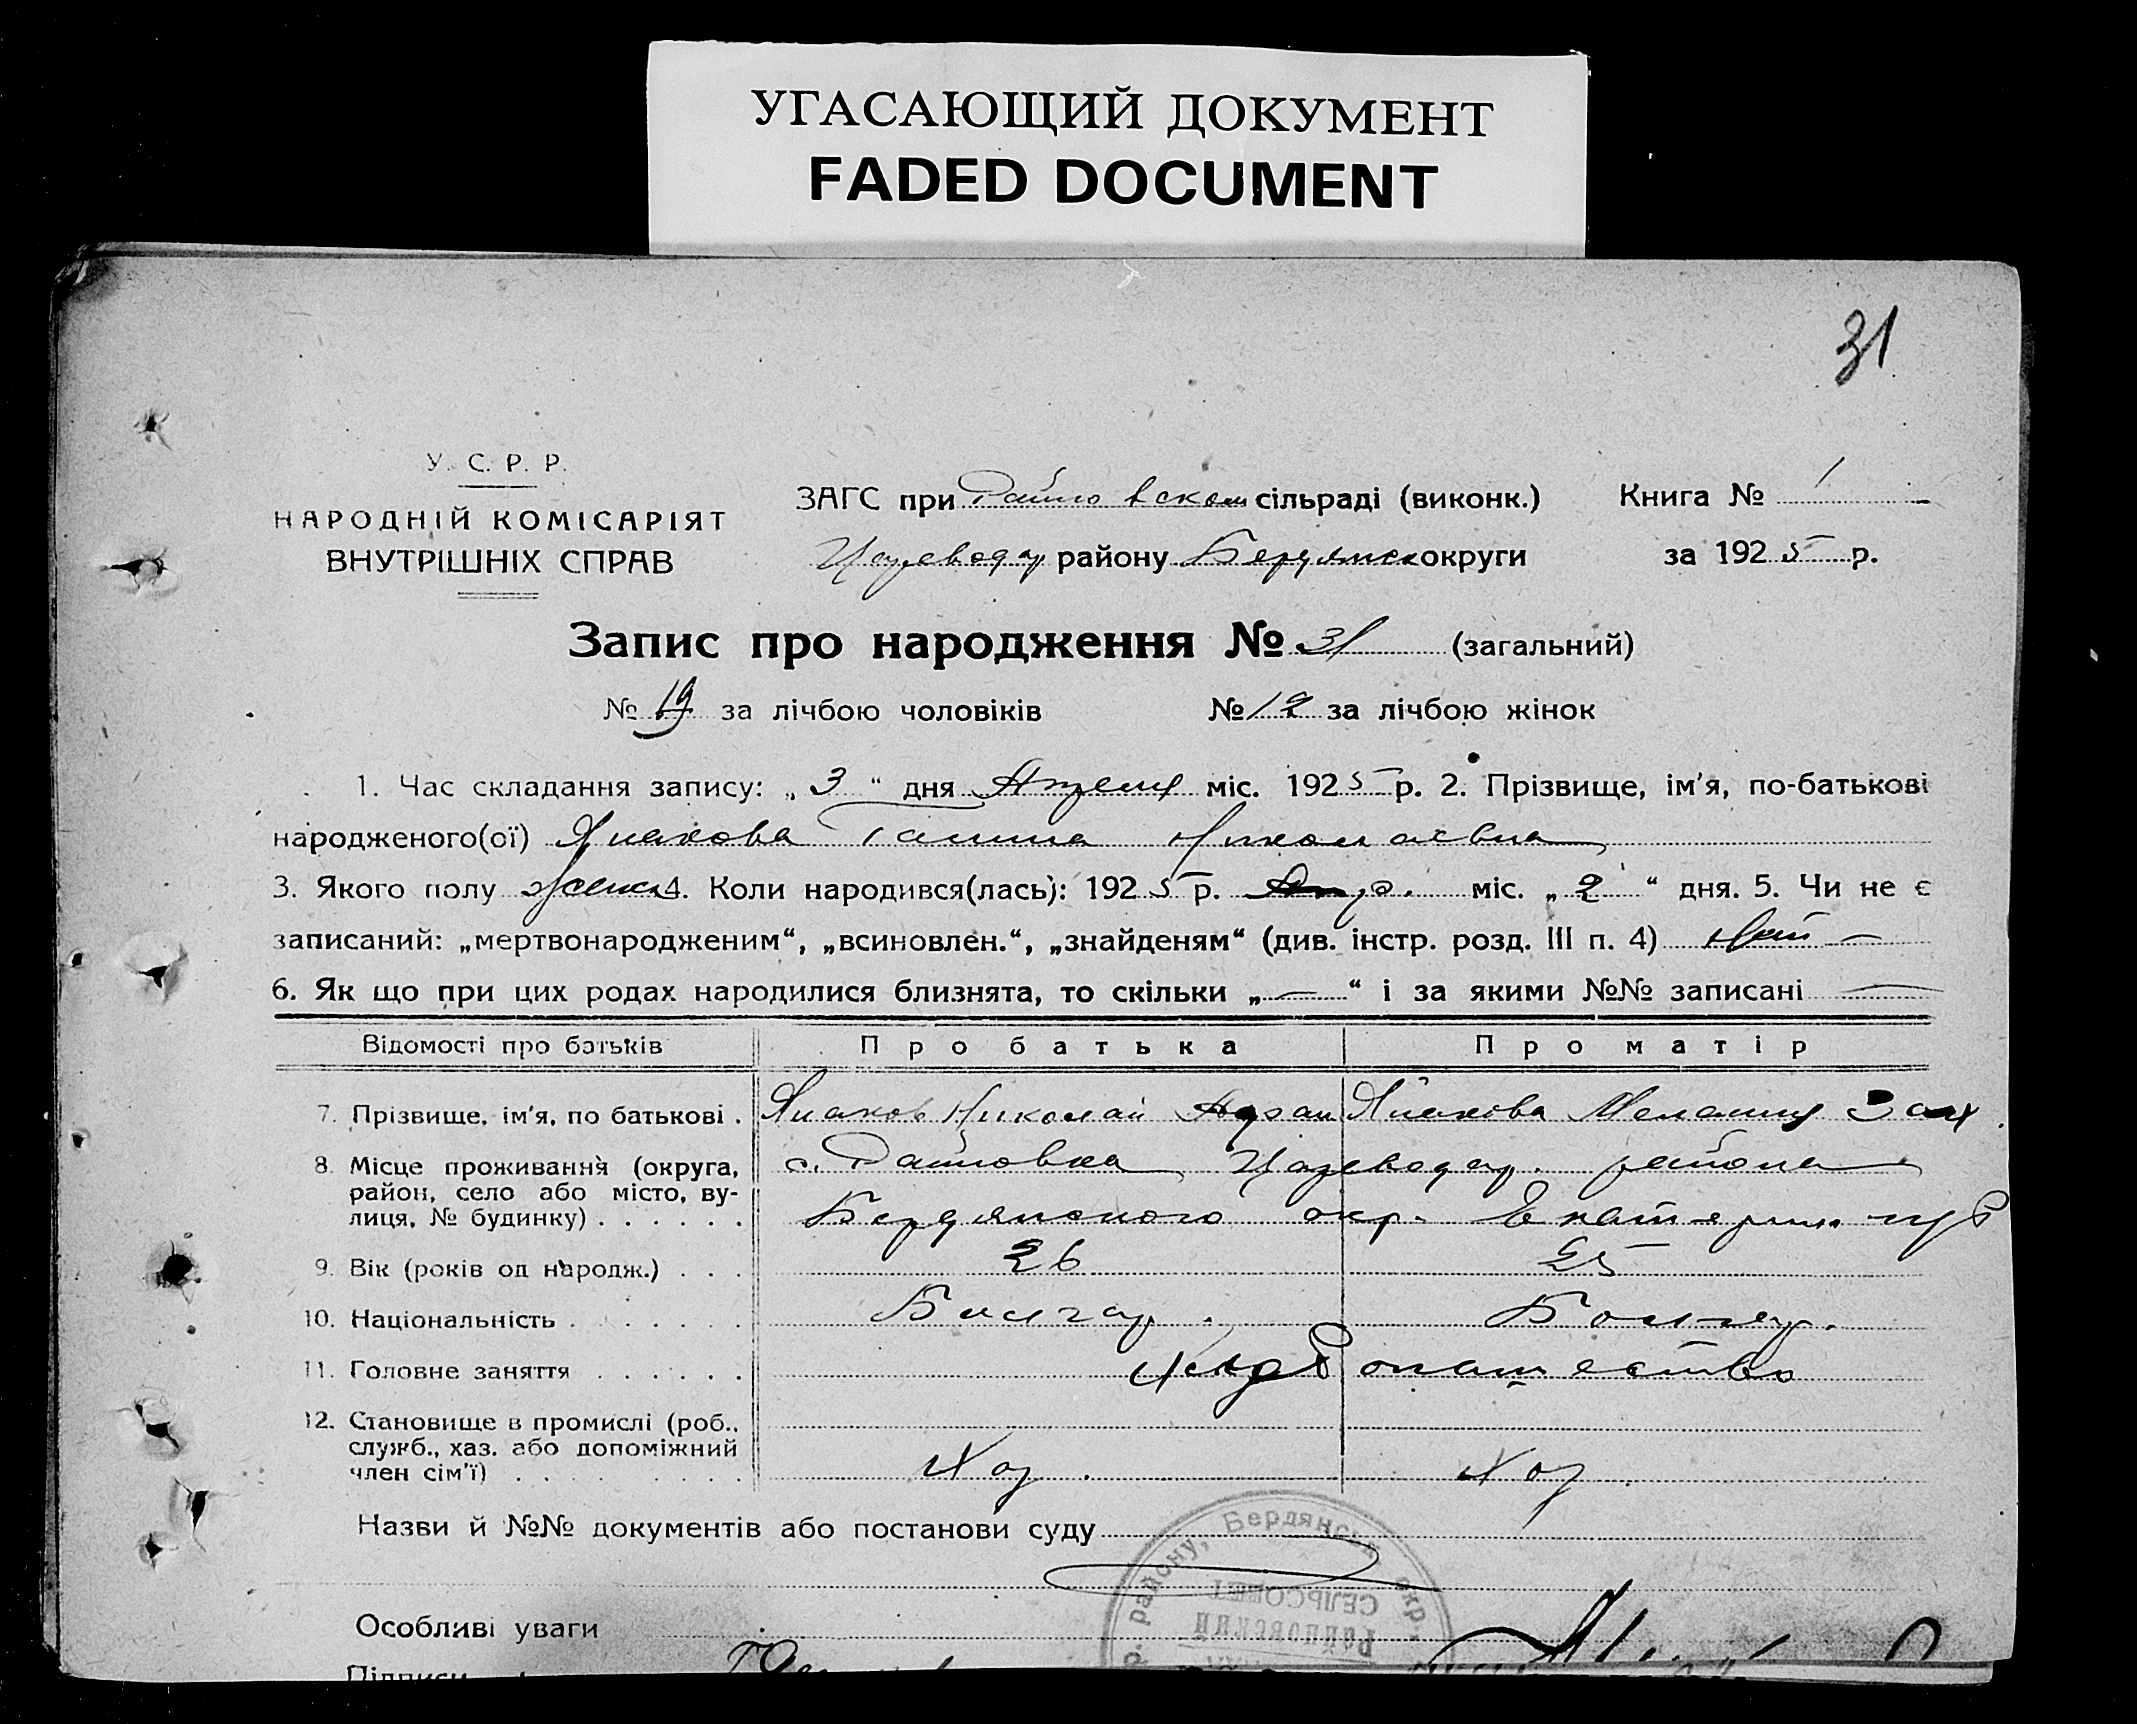 УГАСАЮЩИЙ ДОКУМЕНТ
FADED DOCUMENT
31
У. С. Р. Р.
НАРОДНІЙ КОМІСАРІЯТ
ВНУТРІШНІХ СПРАВ
ЗАГС при сільраді (виконк.)
району Бердянск округи
Книга № 1
за 1925 р.
Запис про народження № 31 (загальний)
№ 19 за лічбою чоловіків № 12 за лічбою жінок
1. Час складання запису: „3“ дня Апреля міс. 1925 р. 2. Прізвище, ім'я, по-батькові
народженого(ої) Галина Николаевна
3. Якого полу женск 4. Коли народився(лась): 1925 р. Апр. міс. „2“ дня. 5. Чи не є
записаний: „мертвонародженим“, „всиновлен.“, „знайденям“ (див. інстр. розд. III п. 4) Нет —
6. Як що при цих родах народилися близнята, то скільки „—“ і за якими №№ записані —
Відомості про батьків Про батька Про матір
7. Прізвище, ім'я, по батькові . Николай Мелания Зах.
8. Місце проживання (округа,
район, село або місто, ву-
лиця, № будинку) . . . . . .
Цареводар. района
Бердянского окр. Екатерин губ
9. Вік (років од народж.) . . . 26 25
10. Національність . . . . . . . Болгар. Болгар.
11. Головне заняття . . . . . . Хлебопашество
12. Становище в промислі (роб.,
служб., хаз. або допоміжний
член сім'ї) . . . . . . . . .
Хоз. Хоз.
Назви й №№ документів або постанови суду
Особливі уваги
Підписи
р. району, Бердянськ окр.
Райновский
СЕЛЬСОВЕТ